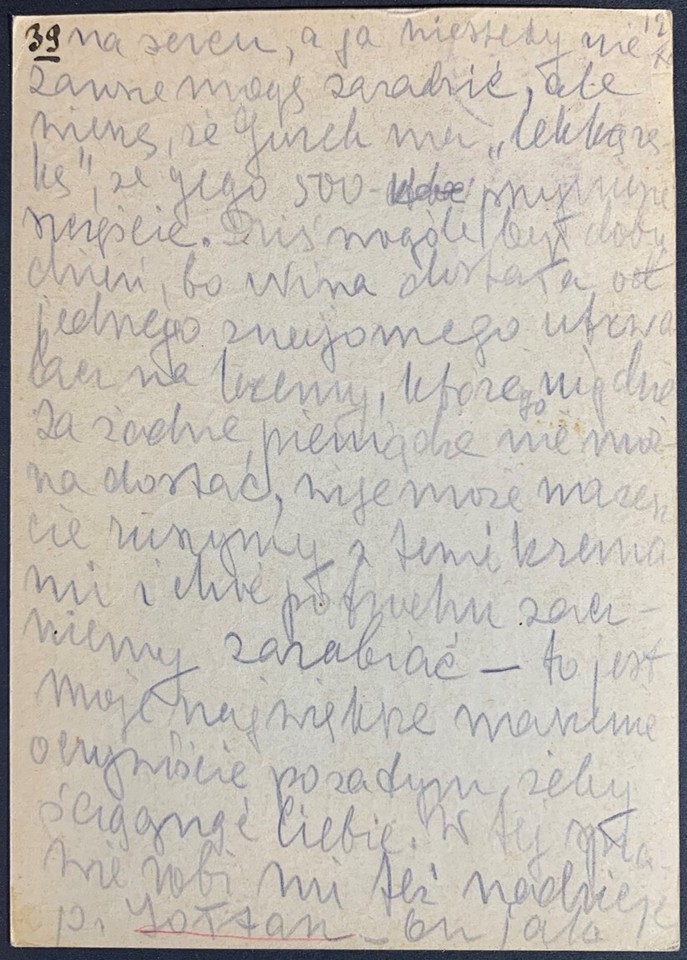 39 na sercu, a ja niestety nie 12
zawsze mogę zaradzić, ale
wierzę, że Jurek ma „lekką rę-
kę", że jego 500- przyniosie
szczęście. Dziś wogóle był dobry
dzień, bo Nina dostała od
jednego znajomego utrwa
lacz na kremy, którego nigdzie
za żadne pieniądze nie moż-
na dostać, więc może nareszcie
cie ruszymy z temi krema
mi i choć potrochu zacz-
niemy zarabiać — to jest
moje największe marzenie
oczywiście pozatym, żeby
ściągnąć Ciebie. W tej spra-
wie robi mi też nadzieję
p. Zołzan - on jak